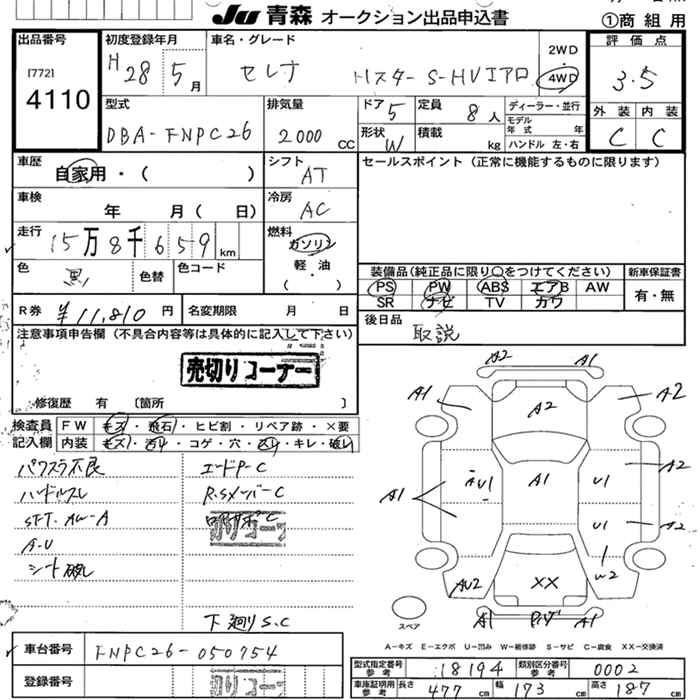 JU 青森 オークション出品申込書
①商組用
出品番号 初度登録年月 車名・グレード 2WD 評価点
[772] H28 5月 セレナ S-HV エアロ 4WD 3.5
4110 型式 排気量 ドア 5 定員 8人 ディーラー・並行 外装 内装
DBA-FNPC26 2000 CC 形状 W 積載 kg モデル年式 年 C C
ハンドル 左・右
車歴 シフト セールスポイント(正常に機能するものに限ります)
自家用・( ) AT
車検 冷房
年 月( 日) AC
走行 燃料
15万8千659 km ガソリン
色 黒 色替 色コード 軽・油 装備品(純正品に限り○をつけてください) 新車保証書
( ) PS PW ABS エアB AW 有・無
SR ナビ TV カワ
R券 ¥11,810円 名変期限 月 日 後日品
取説
注意事項申告欄(不具合内容等は具体的に記入して下さい)
売切りコーナー
修復歴 有 〔箇所 〕
検査員 FW キズ・飛石・ヒビ割・リペア跡・×要
記入欄 内装 キズ・汚れ・コゲ・穴・スレ・キレ・破レ
パワスラ不良 エードP-C
ハンドルスレ R.Sメンバー C
SFT.AW-A
A-U
シート破レ
下廻り S.C
A2 A1
A1 A2 A2
A2
A1 AU1 A1 U1
U1 A2
W2
AU2 XX
A1 A1
スペア
A-キズ E-エクボ U-凹み W-補修跡 S-サビ C-腐食 XX-交換済
車台番号 FNPC26-050754
登録番号
型式指定番号 参考 18194 類別区分番号 参考 0002
車庫証明用 参考 長さ 477 cm 幅 173 cm 高さ 187 cm